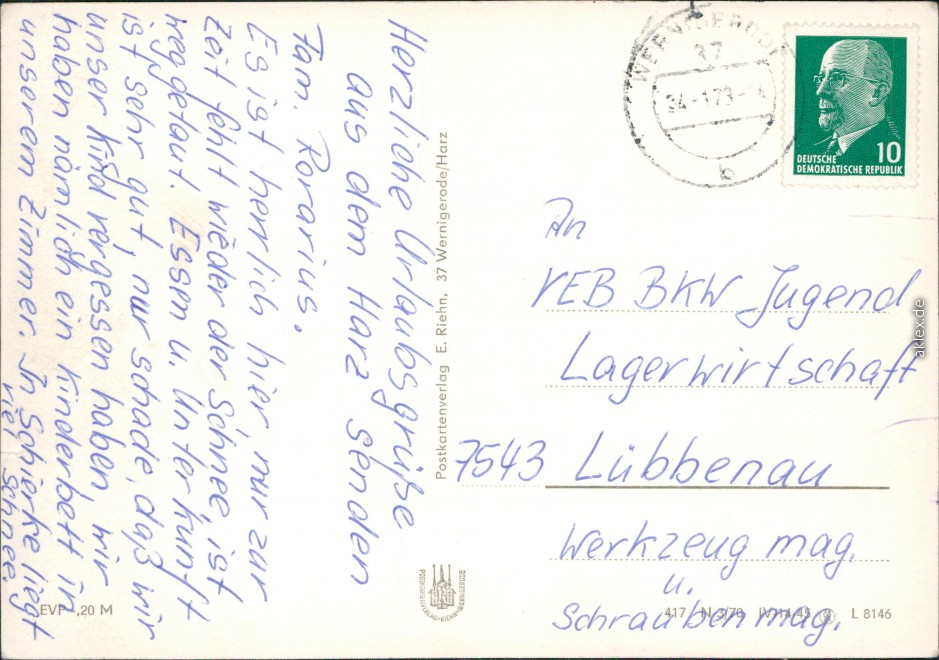 Herzliche Urlaubsgrüße
aus dem Harz senden
Fam. Rorarius.
Es ist herrlich hier, nur zur
Zeit fehlt wieder der Schnee, ist
weggetaut. Essen u. Unterkunft
ist sehr gut, nur schade, daß wir
unser Kind vergessen haben wir
haben nämlich ein Kinderbett in
unserem Zimmer. In Schierke liegt
viel Schnee.
Postkartenverlag E. Riehn, 37 Wernigerode/Harz
WERNIGERODE
37
24.-1.73.-
b
10
DEUTSCHE
DEMOKRATISCHE REPUBLIK
An
VEB BKW Jugend
Lagerwirtschaft
7543 Lübbenau
Werkzeug mag.
u.
Schraubenmag.
POSTKARTENVERLAG·RIEHN·WERNIGERODE
EVP -,20 M
417 N 3/70 IV-14-45 L 8146
aklex.de